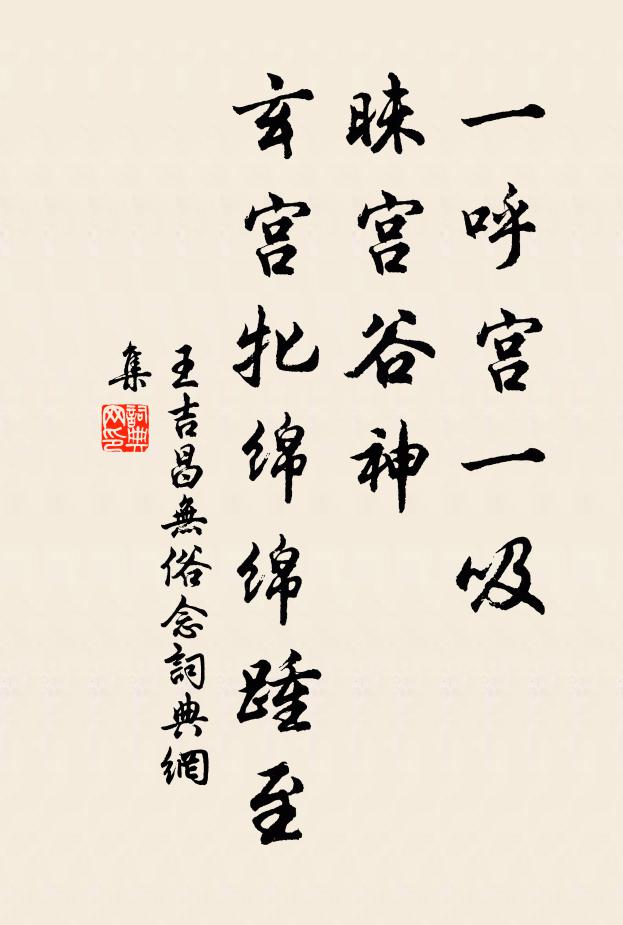 一呼宫一吸
睐宫谷神
玄宫牝绵绵踵至
王吉昌無俗念詞典網
集
詞典
网印